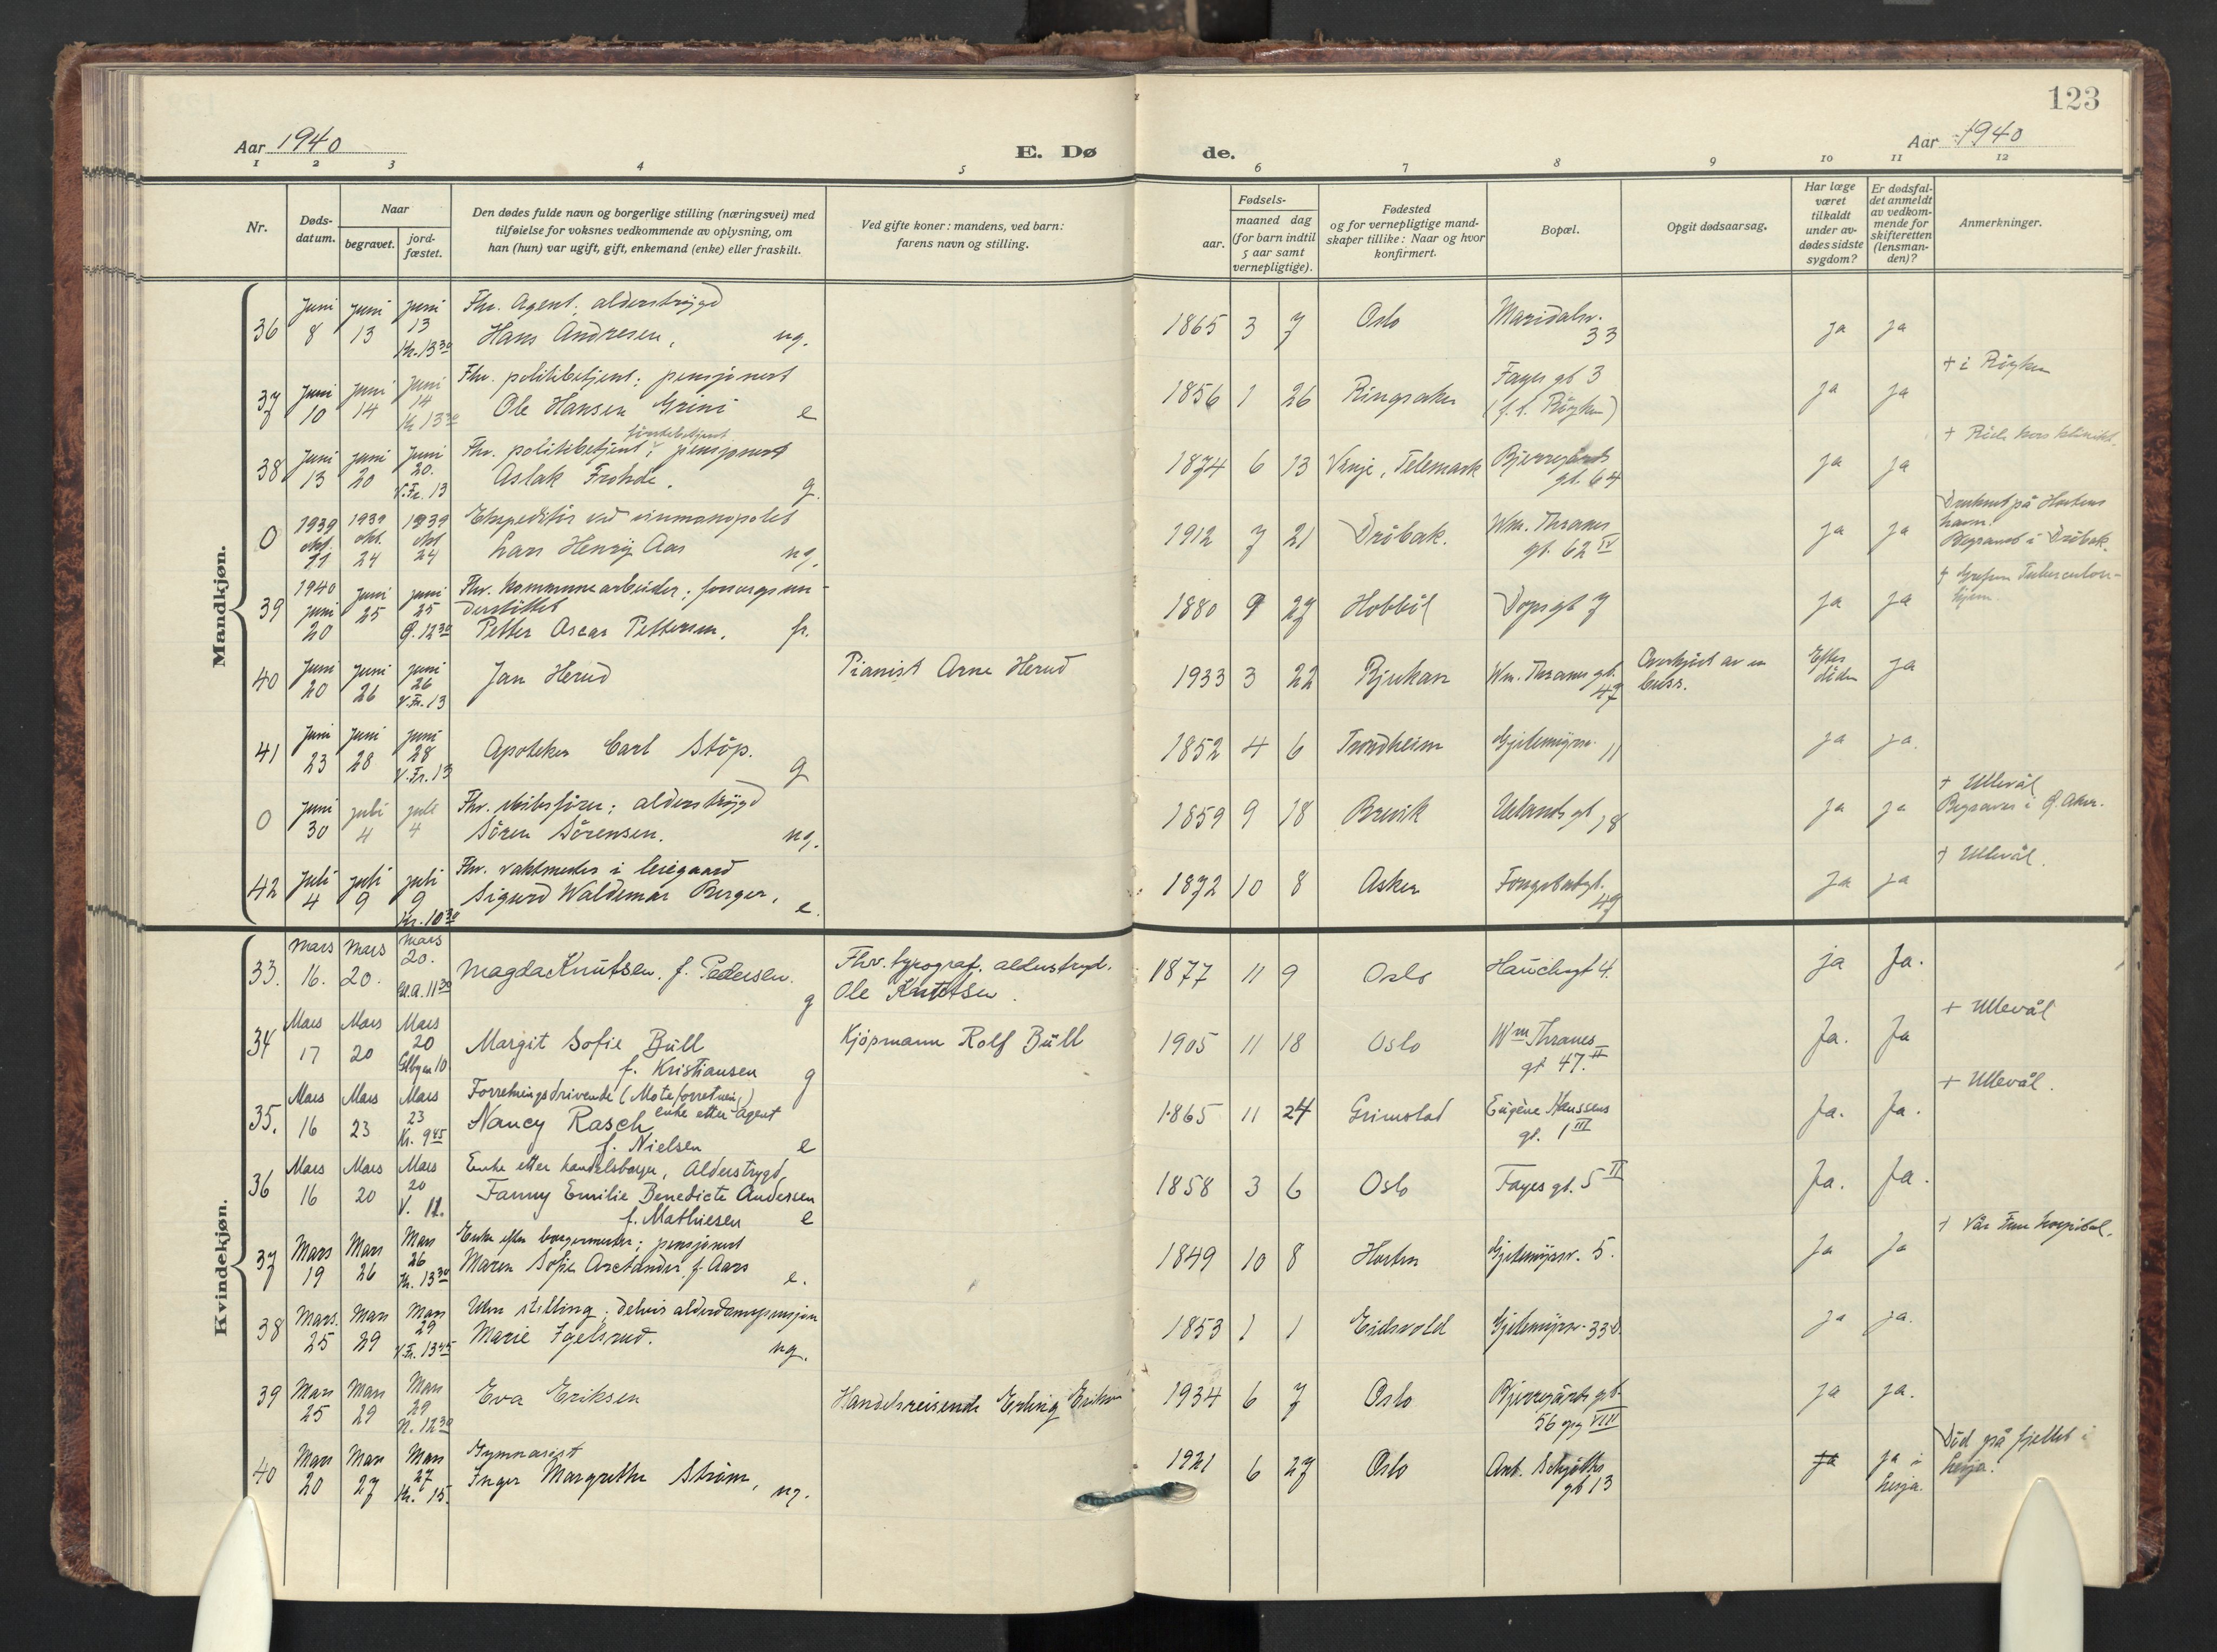 123
Aar 1940
E. Dø
de.
Aar 1940
1 2 3 4 5 6 7 8 9 10 11 12
Nr.
Døds-
datum.
Naar
begravet.
jord-
fæstet.
Den dødes fulde navn og borgerlige stilling (næringsvei) med
tilføielse for voksnes vedkommende av oplysning, om
han (hun) var ugift, gift, enkemand (enke) eller fraskilt.
Ved gifte koner: mandens, ved barn:
farens navn og stilling.
Fødsels-
aar.
maaned dag
(for barn indtil
5 aar samt
vernepligtige).
Fødested
og for vernepligtige mand-
skaper tillike: Naar og hvor
konfirmert.
Bopæl.
Opgit dødsaarsag.
Har læge
været
tilkaldt
under av-
dødes sidste
sygdom?
Er dødsfal-
det anmeldt
av vedkom-
mende for
skifteretten
(lensman-
den)?
Anmerkninger.
Mandkjøn.
36 Juni 8 Juni 13 Juni 13 Kr. 13 30
Fhv. Agent; alderstrygd
Hans Andresen, ug.
1865 3 7 Oslo Maridalsv. 33 ja ja
37 Juni 10 Juni 14 Juni 14 Kr. 13 30
Fhv. politibetjent; pensjonert
Ole Hansen Grini e
1856 1 26 Ringsaker Fayes gt 3 (f. t. Røyken) ja ja + i Røyken
38 Juni 13 Juni 20 Juni 20. V.Fr. 13
Fhv. politibetjent; pensjonert
Aslak Frohde. g.
1874 6 13 Vinje, Telemark Bjerregårds gt. 64 ja ja
0 1939 okt. 1939 okt. 24 1939 okt 24
Ekspeditør ved vinmonopolet
Lars Henry Aas ug.
1912 7 21 Drøbak. Wm. Thranes gt. 62 IV ja ja Druknet på Hortens havn. Begravet i Drøbak.
39 1940 juni 20 Juni 25 juni 25 G. 12 30
Fhv. Kommunearbeider; forsorgsun-
derstøttet
Petter Oscar Pettersen, fr.
1880 9 27 Hobbøl Dopsgt 7 ja ja
40 Juni 20 Juni 26 juni 26 V.Fr. 13
Jan Herud
Pianist Arne Herud
1933 3 22 Rjukan Wm. Thranes gt. 47 Overkjørt av en buss. Efter døden ja
41 Juni 23 Juni 28 juni 28 V.Fr. 13
Apoteker Carl Støp. g
1852 4 6 Trondheim Gjetemyrsv. 11 ja ja.
0 Juni 30 juli 4 juli 4
Fhv. skibsfører; alderstrygd
Søren Sørensen. ug.
1859 9 18 Brevik Uelands gt 18 ja ja + Ullevål Begraves i Ø. Aker.
42 Juli 4 juli 9 juli 9 Kr. 10 30
Fhv. vaktmester i leiegaard
Sigurd Waldemar Berger, e.
1872 10 8 Asker 49 ja ja + Ullevål.
Kvindekjøn.
33. Mars 16. Mars 20. Mars 20. 11 30
Magda Knutsen. f. Pedersen. g
Fhv. typograf. alderstrygd.
Ole Knutsen.
1877 11 9 Oslo Hauchsgt 4. ja Ja.
34 Mars 17 Mars 20 Mars 20 10
Margit Sofie Büll
f. Kristiansen g
Kjøpmann Rolf Büll
1905 11 18 Oslo Wm Thranes gt 47. II Ja. Ja + Ullevål
35. Mars 16 Mars 23 Mars 23 Kr. 9 45
Forretningsdrivende (Moteforretning)
Nancy Rasch enke etter agent
f. Nielsen e
1865 11 24 Grimstad Eugène Hanssens gt. 1 III Ja. Ja. + Ullevål.
36 Mars 16 Mars 20 Mars 20 V. 12.
Enke etter handelsborger, Alderstrygd
Fanny Emilie Benedicte Andersen
f. Mathiesen e
1858 3 6 Oslo Fayes gt. 5 II Ja. Ja.
37 Mars 19 Mars 26 Mars 26 Kr. 13 30
Enke efter borgermester; pensjonert
Maren Sofie Arctander f. Aars e.
1849 10 8 Horten Gjetemyrsv. 5. Ja Ja + Vår Frue hospital.
38 Mars. 25 Mars 29 Mars 29 V.Fr. 13 45
Uten stilling; delvis alderdomspensjon
Marie Igelsrud. ug.
1853 1 1 Eidsvold Gjetemyrsv. 33 ja ja.
39 Mars 25 Mars 29 Mars 29 N. 12 30
Eva Eriksen
Handelsreisende Erling Eriksen
1934 6 7 Oslo Bjerregårds gt. 56 opg VIII ja ja.
40 Mars 20 Mars 27 Mars 27 Kr. 15.
Gymnasist
Inger Margrethe Strøm, ug.
1921 6 27 Oslo Ant. Schjøths gt 13 ja ja i Lesja. Død på fjellet i Lesja.